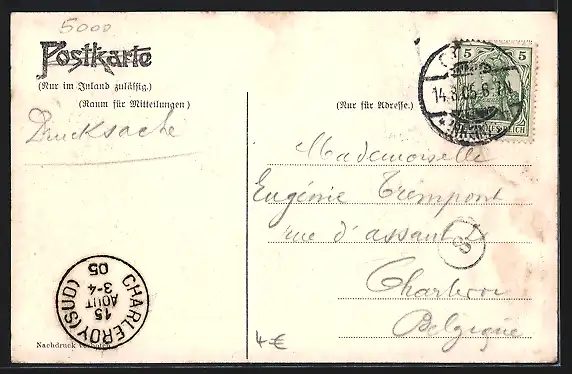 5000
Postkarte
(Nur im Inland zulässig.)
(Raum für Mitteilungen)
Drucksache
(Nur für Adresse.)
5 5
14.8.05.6-7N.
Mademoiselle
Eugénie Trempont
rue d'assaut
Charleroi
Belgique
S
CHARLEROY (SUD)
15
AOUT
3-4
05
4 €
Nachdruck